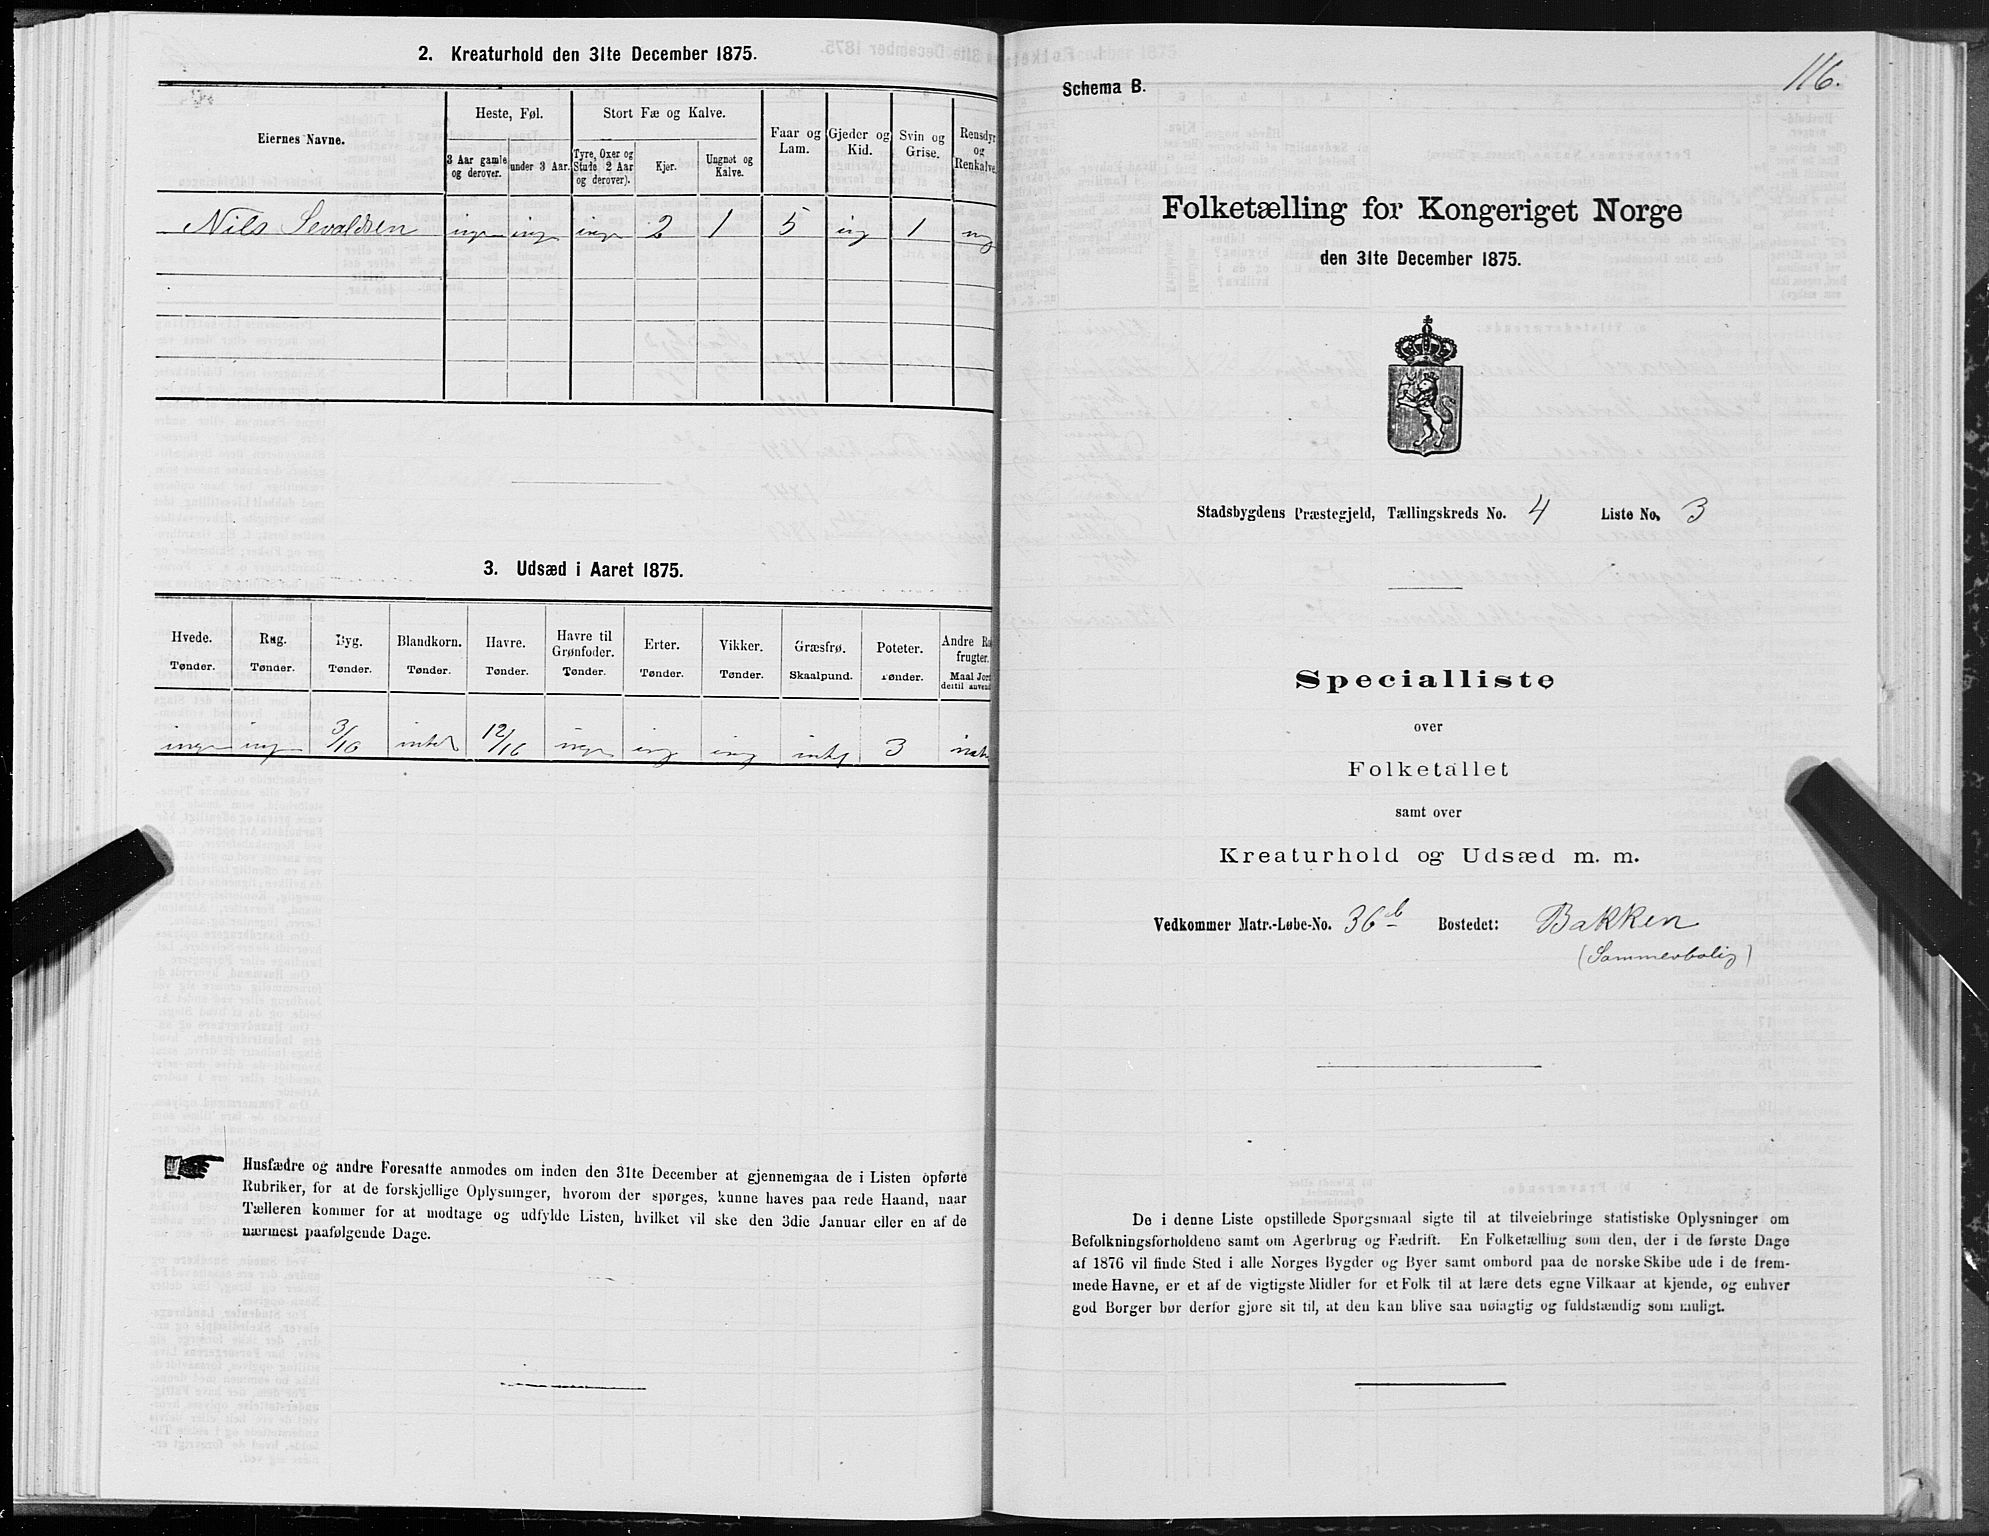 2. Kreaturhold den 31te December 1875.
Eiernes Navne.
Heste, Føl.
Stort Fæ og Kalve.
Faar og Lam.
Gjeder og Kid.
Svin og Grise.
Rensdyr og Renkalve.
3 Aar gamle og derover.
under 3 Aar.
Tyre, Oxer og Stude 2 Aar og derover).
Kjer.
Ungnøt og Kalve.
Nils Sevaldsen ingen ing inge 2 1 5 ing 1 ing
3. Udsæd i Aaret 1875.
Hvede. Rug. Byg. Blandkorn. Havre. Havre til Grønfoder. Erter. Vikker. Græsfrø. Poteter. Andre Ro frugter.
Tønder. Tønder. Tønder. Tønder. Tønder. Tønder. Tønder. Tønder. Skaalpund. Tønder. Maal Jord dertil anvendt
inge ing 3/16 intet 12/16 inge ing ing intet 3 intet
Husfædre og andre Foresatte anmodes om inden den 31te December at gjennemgaa de i Listen opførte
Rubriker, for at de forskjellige Oplysninger, hvorom der spørges, kunne haves paa rede Haand, naar
Tælleren kommer for at modtage og udfylde Listen, hvilket vil ske den 3die Januar eller en af de
nærmest paafølgende Dage.
116.
Schema B.
Folketælling for Kongeriget Norge
den 31te December 1875.
Stadsbygdens Præstegjeld, Tællingskreds No. 4 Liste No. 3
Specialliste
over
Folketallet
samt over
Kreaturhold og Udsæd m. m.
Vedkommer Matr.-Løbe-No. 36b Bostedet: Bakken
(Sommerbolig)
De i denne Liste opstillede Spørgsmaal sigte til at tilveiebringe statistiske Oplysninger om
Befolkningsforholdene samt om Agerbrug og Fædrift. En Folketælling som den, der i de første Dage
af 1876 vil finde Sted i alle Norges Bygder og Byer samt ombord paa de norske Skibe ude i de frem-
mede Havne, er et af de vigtigste Midler for et Folk til at lære dets egne Vilkaar at kjende, og enhver
god Borger bør derfor gjøre sit til, at den kan blive saa nøiagtig og fuldstændig som muligt.